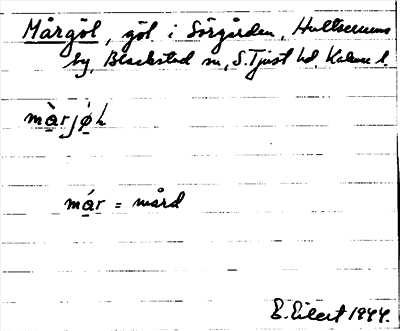 Mårgöl, göl i Sörgården, Hultserums
by, Blackstad sn, S. Tjust hd, Kalmar l.
màrjö̀L
már = mård
E. Eilert 1944.